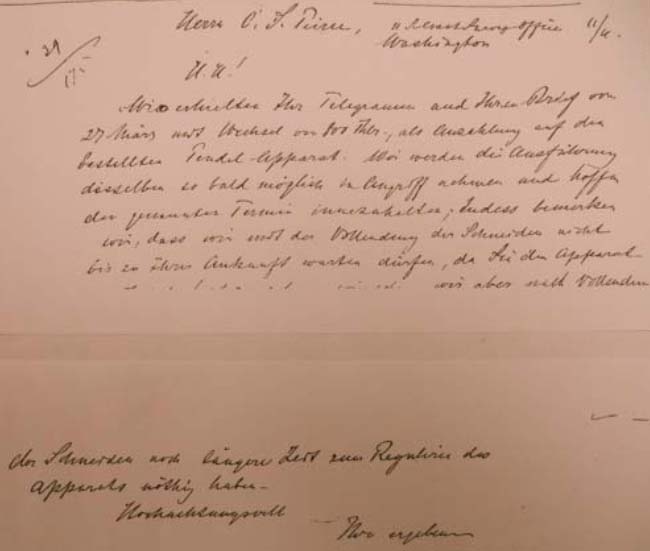 Herrn C. S. Peirce, U.S. Coast Survey Office 11/4.
Washington
29
17/5
H. H.!
Wir erhielten Ihr Telegramm und Ihren Brief vom
27 März mit Wechsel von 800 Thlr., als Anzahlung auf den
bestellten Pendel-Apparat. Wir werden die Ausführung
desselben so bald möglich in Angriff nehmen und hoffen
den genannten Termin innezuhalten; Indess bemerken
wir, dass wir mit der Vollendung der Schneiden nicht
bis zu Ihrer Ankunft warten dürfen, da Sie den Apparat
wir aber nach Vollendung
der Schneiden noch längere Zeit zum Reguliren des
Apparats nöthig haben.
Hochachtungsvoll
Ihre ergebenen